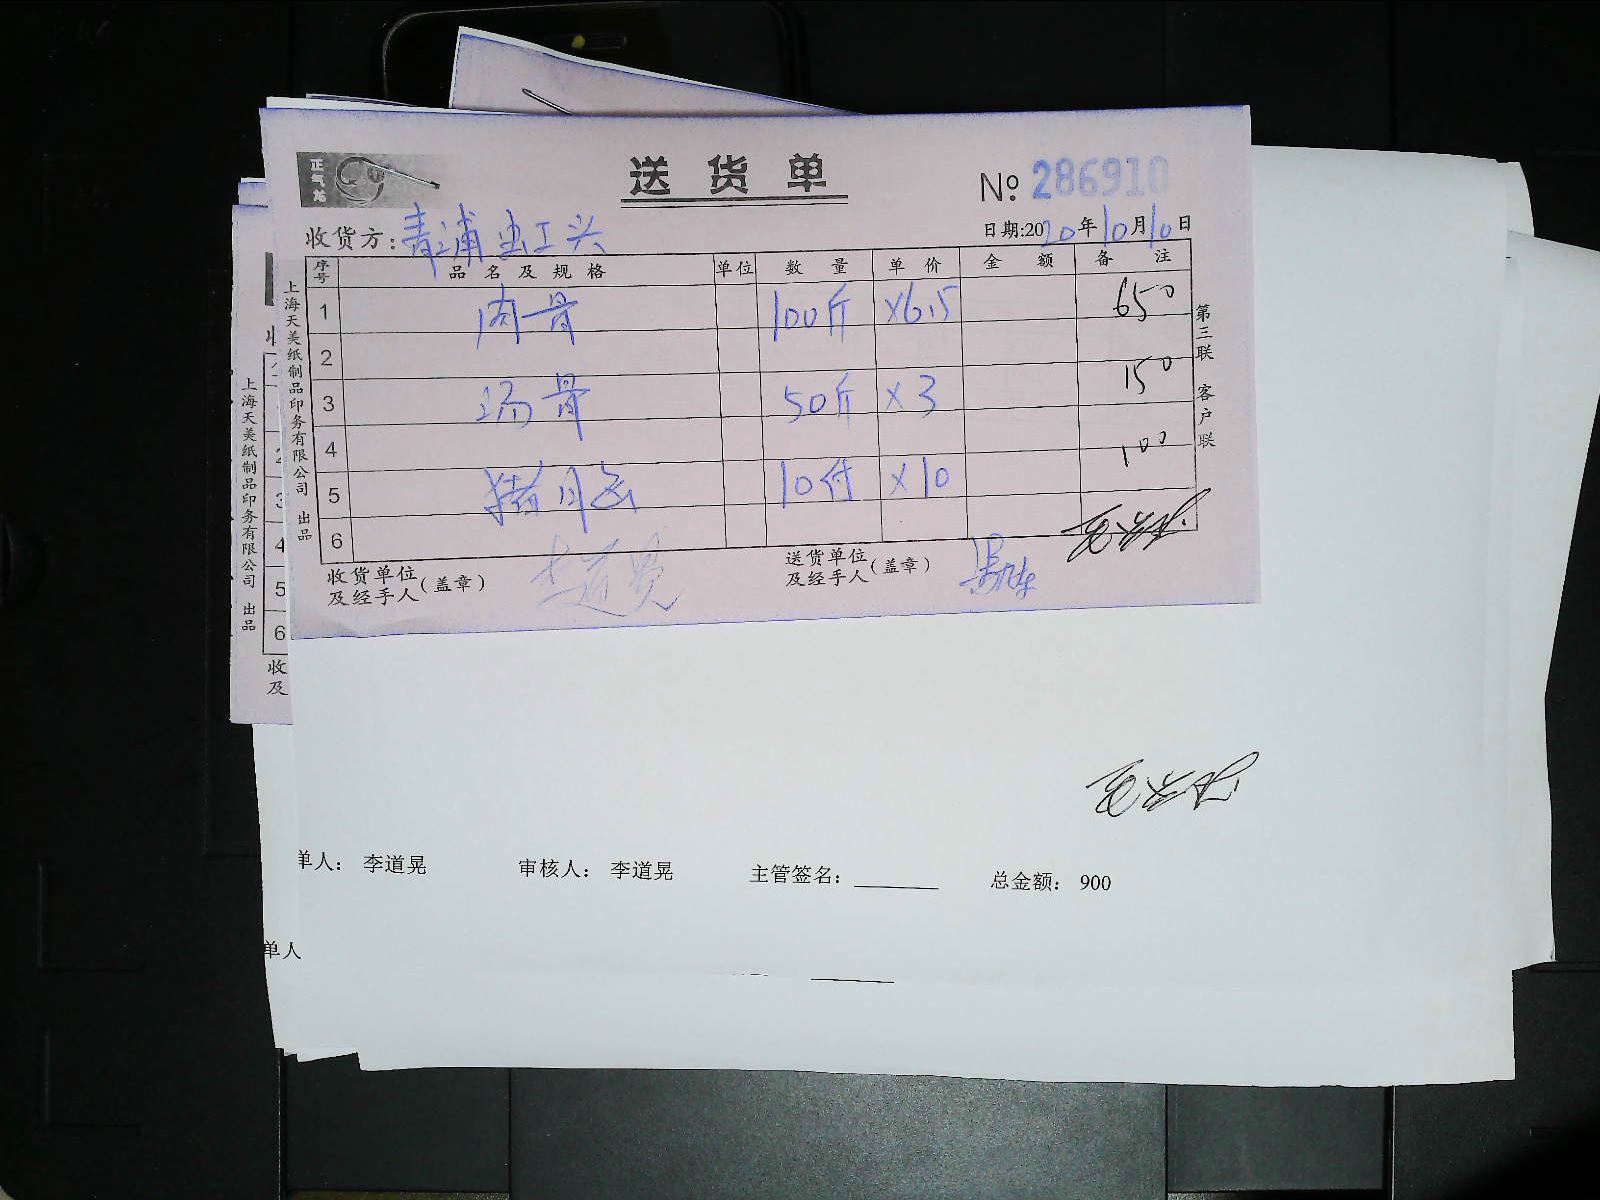 正气龙
送货单
№ 286910
收货方：青浦虫工兴
日期:2020年10月10日
序号 品名及规格 单位 数量 单价 金额 备注
1 肉骨 100斤 ×6.5 650
2
3 汤骨 50斤 ×3 150
4
5 猪月 10付 ×10 100
6
收货单位及经手人(盖章) 李道晃
送货单位及经手人(盖章)
上海天美纸制品印务有限公司 出品
第三联 客户联
上海天美纸制品印务有限公司 出品
3
4
5
6
收
及
单人： 李道晃 审核人： 李道晃 主管签名：________ 总金额： 900
单人